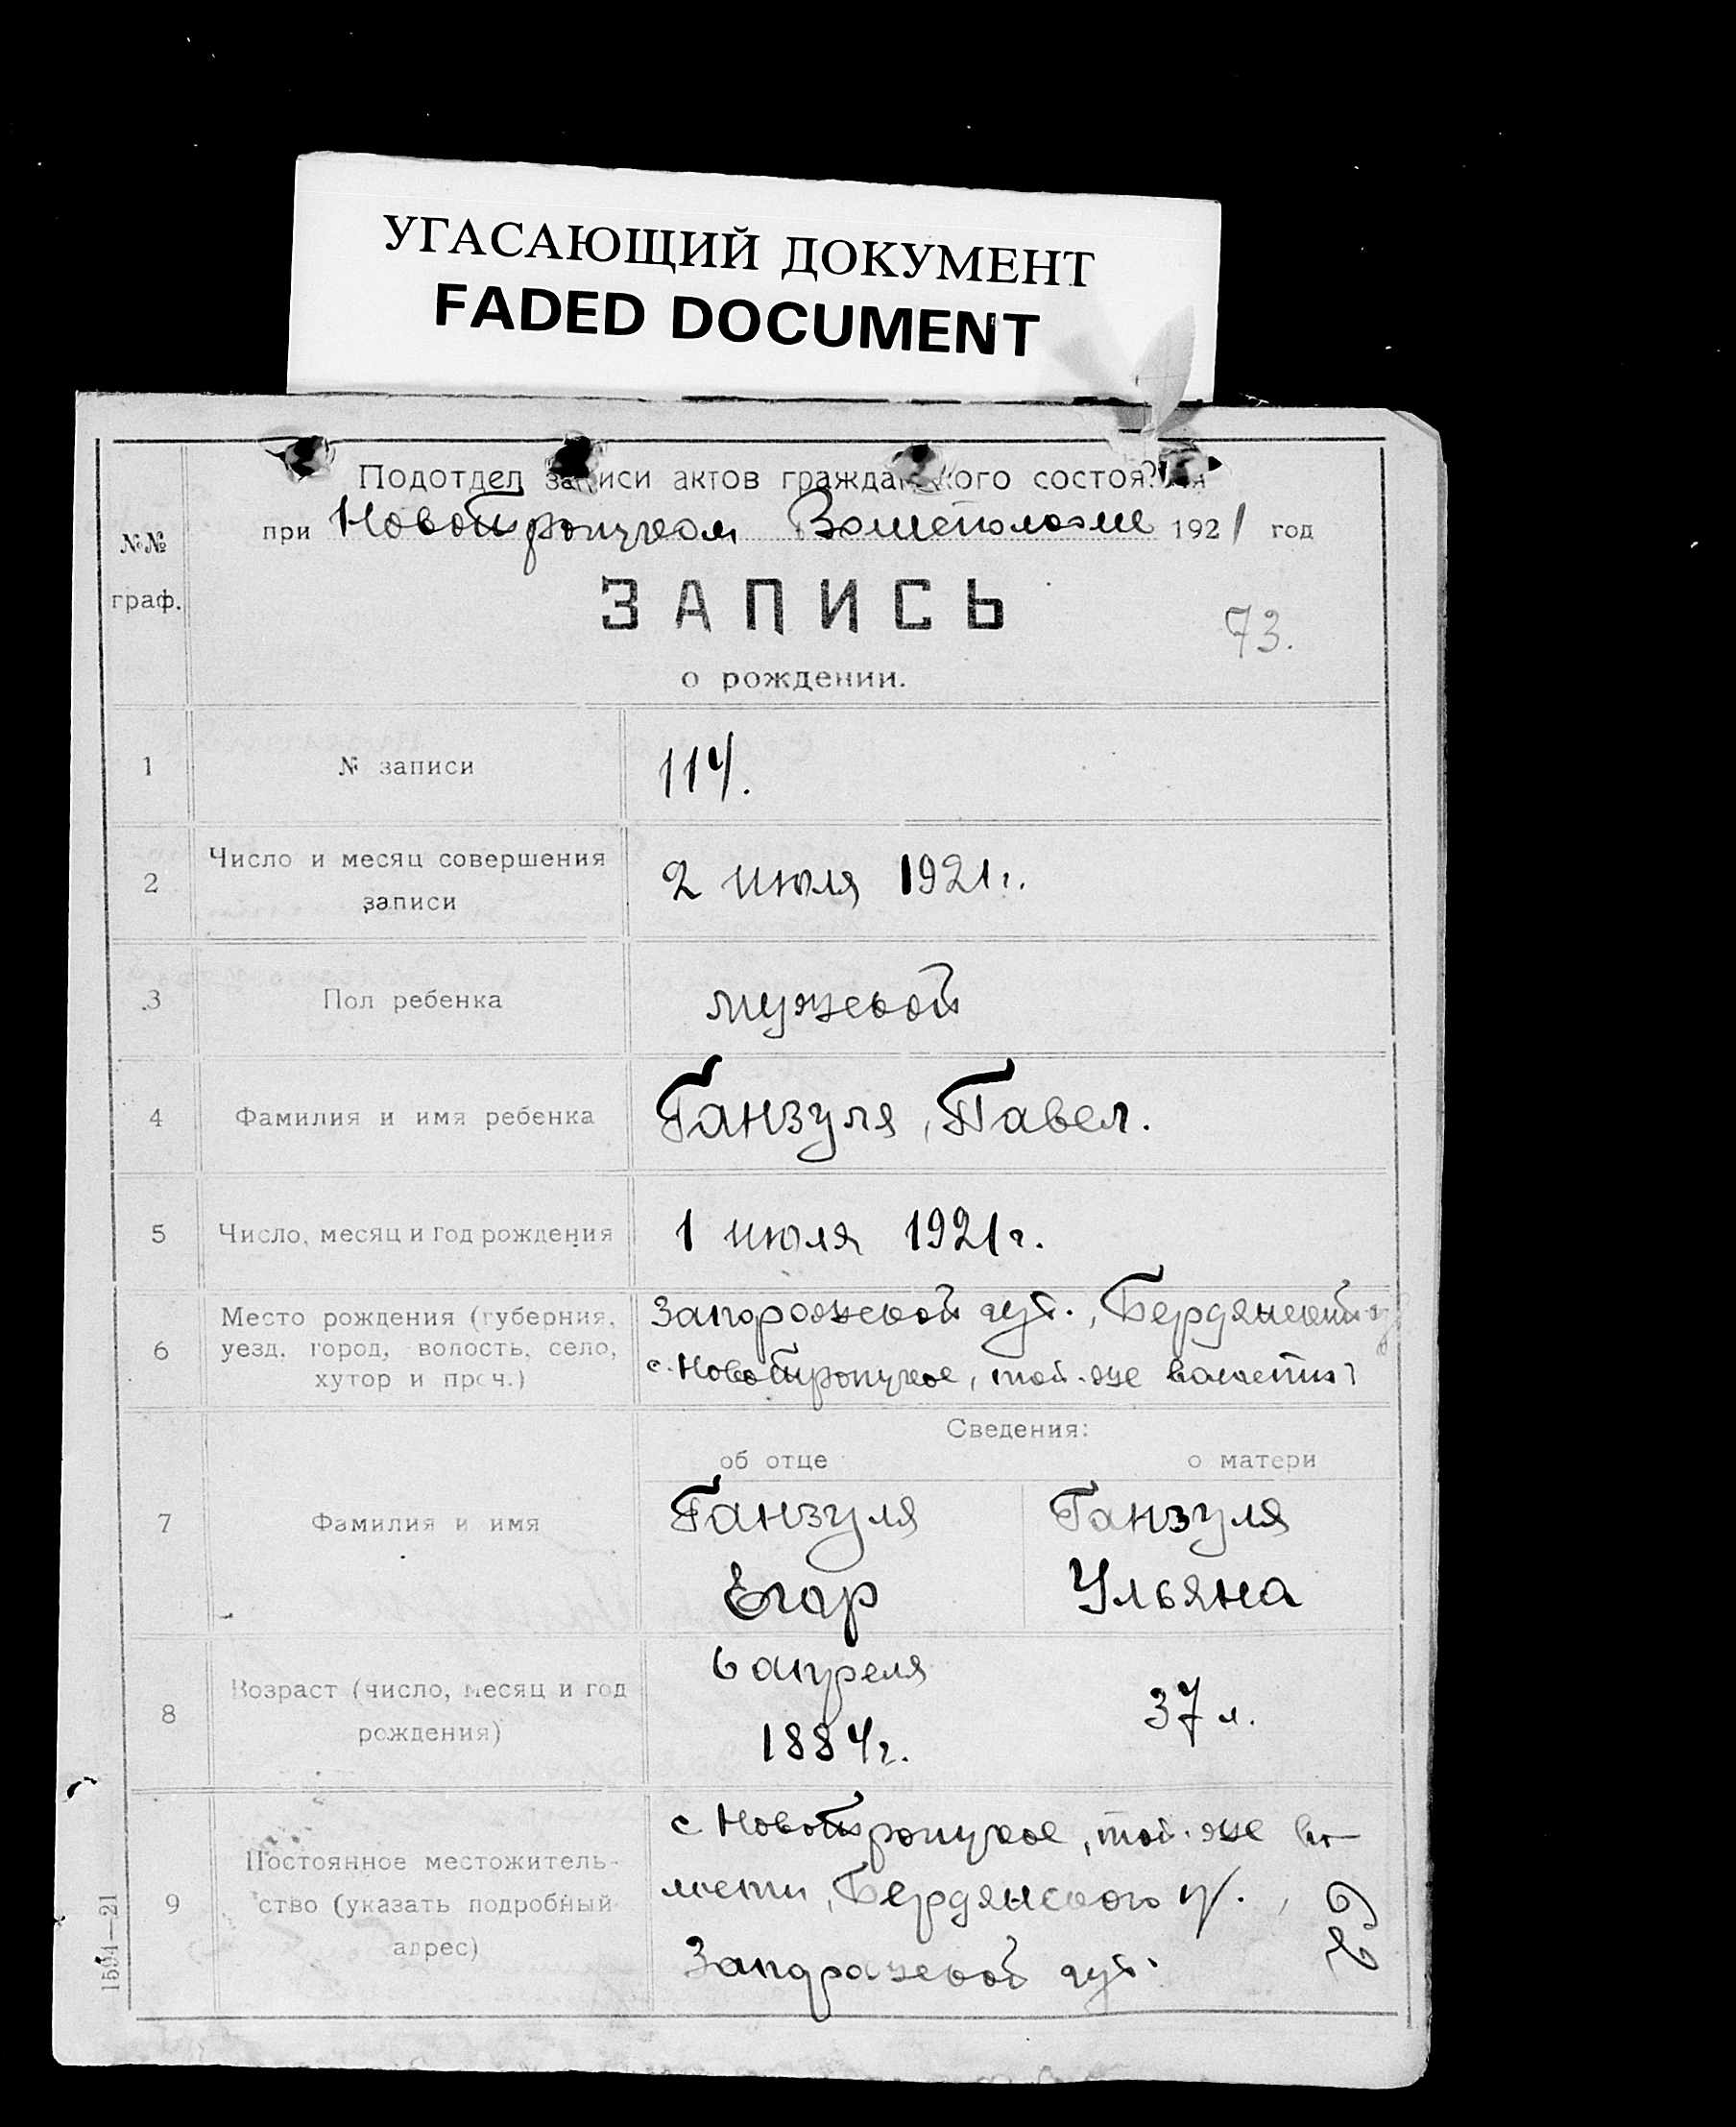 УГАСАЮЩИЙ ДОКУМЕНТ
FADED DOCUMENT
Подотдел записи актов гражданского состояния
при Новотроицком Волисполкоме 1921 год
№№
граф.
ЗАПИСЬ
73.
о рождении.
1 № записи 114.
2 Число и месяц совершения
записи 2 июля 1921 г.
3 Пол ребенка мужской
4 Фамилия и имя ребенка Ганзуля, Павел.
5 Число, месяц и год рождения 1 июля 1921 г.
6 Место рождения (губерния,
уезд, город, волость, село,
хутор и проч.)
Запорожской губ., Бердянский у
с. Новотроицкое, той-же волости
Сведения:
об отце о матери
7 Фамилия и имя
Ганзуля Ганзуля
Егор Ульяна
8 Возраст (число, месяц и год
рождения)
6 апреля
1884 г. 37 л.
9 Постоянное местожитель-
ство (указать подробный
адрес)
с. Новотроицкое, той-же во-
лости, Бердянского у.,
Запорожской губ.
1594—21